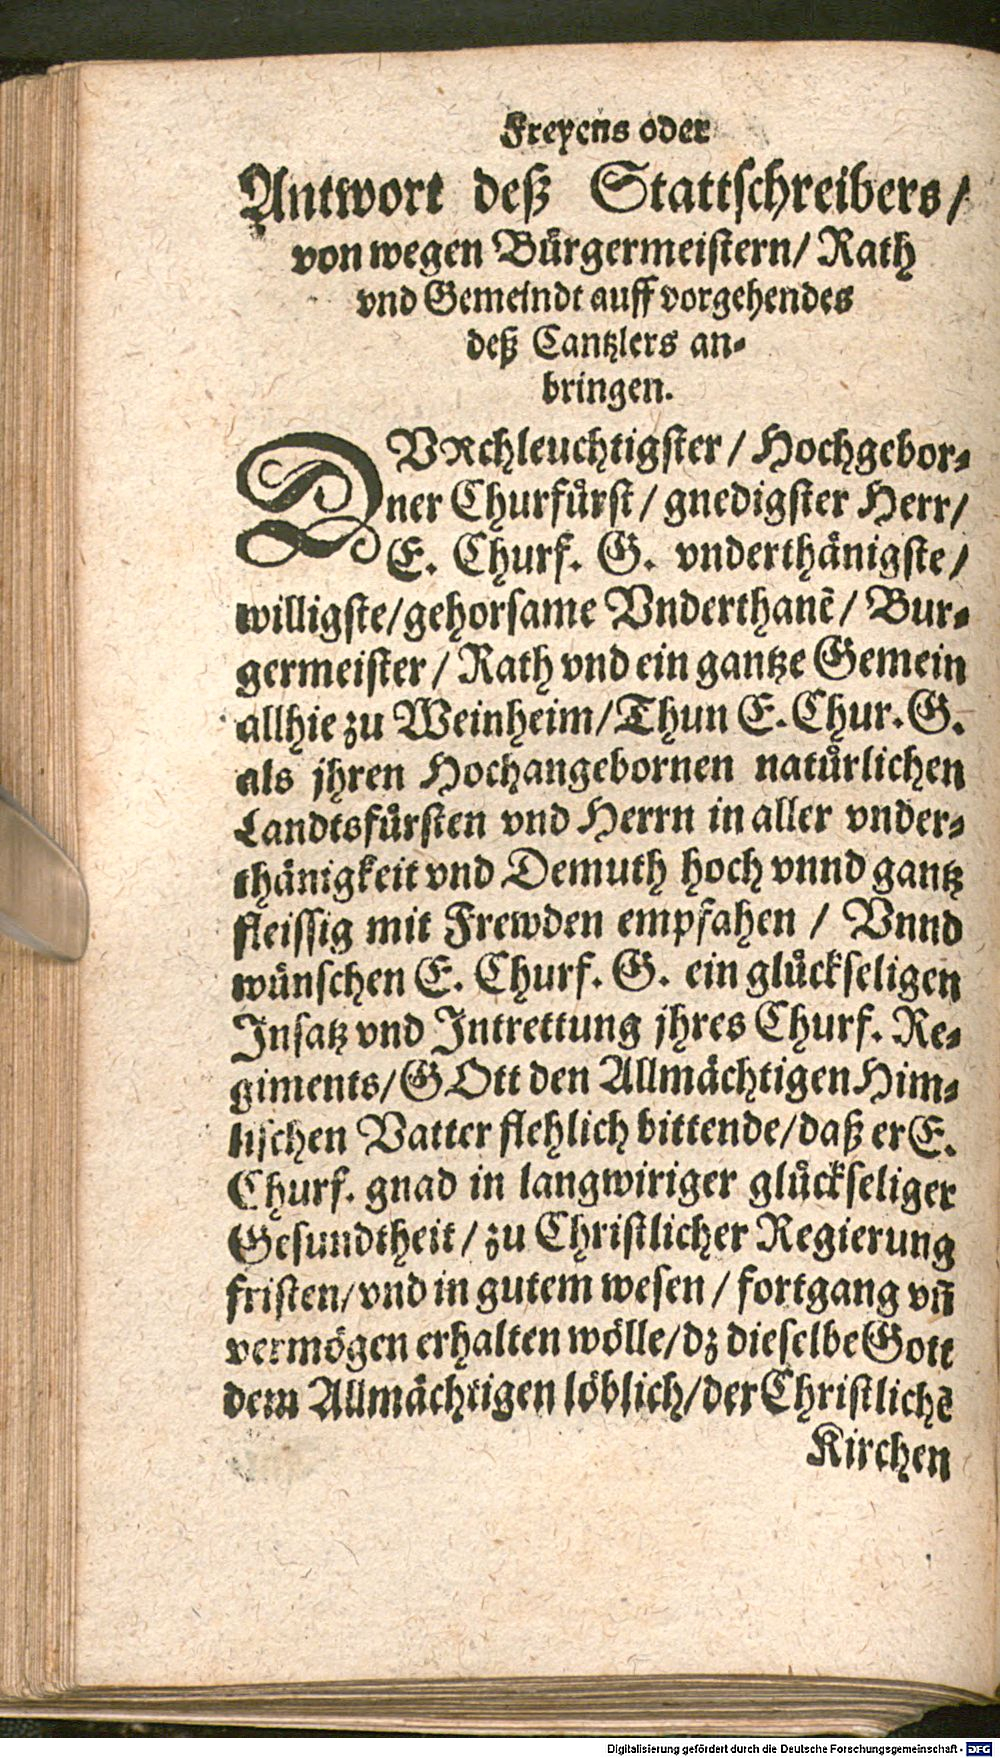 Freyens oder
Antwort deß Stattschreibers/
von wegen Bürgermeistern/ Rath
vnd Gemeindt auff vorgehendes
deß Cantzlers an-
bringen.
DVRchleuchtigster/ Hochgebor-
ner Churfürst/ gnedigster Herr/
E. Churf. G. vnderthänigste/
willigste/gehorsame Vnderthanẽ/ Bur-
germeister/ Rath vnd ein gantze Gemein
allhie zu Weinheim/Thun E. Chur. G.
als jhren Hochangebornen natürlichen
Landtsfürsten vnd Herrn in aller vnder-
thänigkeit vnd Demuth hoch vnnd gantz
fleissig mit Frewden empfahen / Vnnd
wünschen E. Churf. G. ein glückseligen
Insatz vnd Intrettung jhres Churf. Re-
giments/GOtt den Allmächtigen Him-
lischen Vatter flehlich bittende/daß er E.
Churf. gnad in langwiriger glückseliger
Gesundtheit/ zu Christlicher Regierung
fristen/vnd in gutem wesen / fortgang vñ
vermögen erhalten wölle/dz dieselbe Gott
dem Allmächtigen löblich/der Christlichẽ
Kirchen
Digitalisierung gefördert durch die Deutsche Forschungsgemeinschaft - DFG